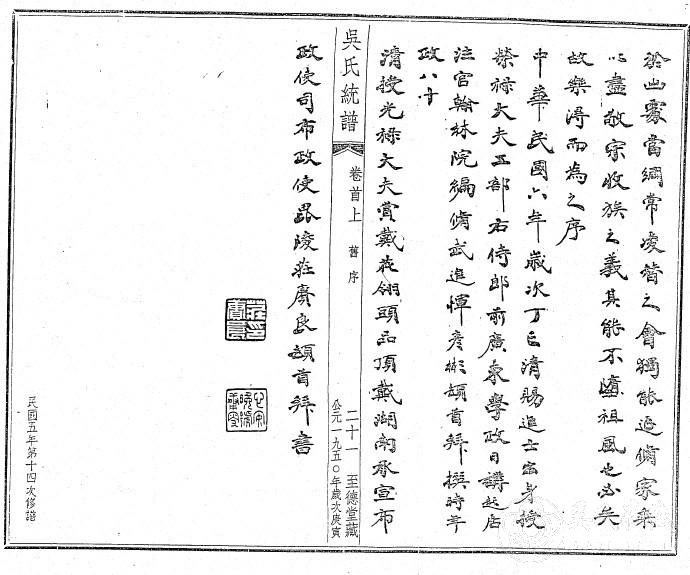 於此處當綱常凌替之會獨能追脩家乘
以盡敬宗收族之義其能不墮祖風也必矣
故樂得而為之序
中華民國六年歲次丁巳清賜進士出身授
榮祿大夫工部右侍郎前廣東學政日講起居
注官翰林院編脩武進惲彥彬頓首拜撰時年
政八十
清授光祿大夫賞戴花翎頭品頂戴湖南承宣布
吳氏統譜
卷首上
舊序
二十一
至德堂藏
公元一九五〇年歲次庚寅
政使司布政使毘陵莊賡良頓首拜書
民國五年第十四次修譜